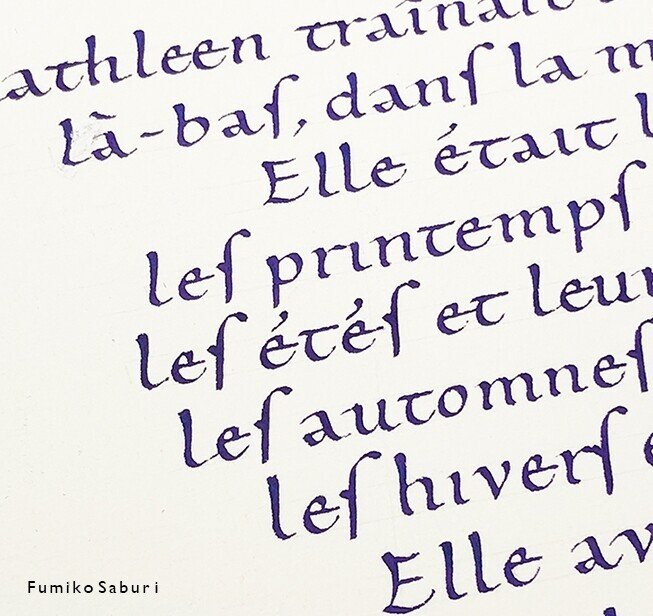 athleen traînait
là-baſ, danſ la m
Elle était l
leſ printempſ
leſ étéſ et leur
leſ automneſ
leſ hiverſ
Elle av
Fumiko Saburi